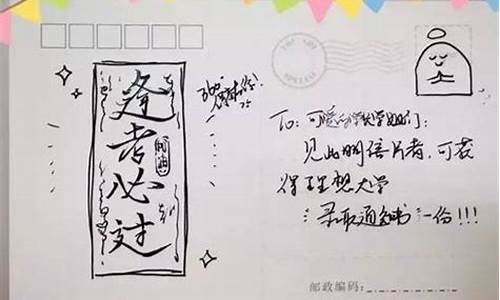 逢考必过
To：可爱的学弟学妹们：
见此明信片者，可获
得理想大学
录取通知书一份！！！
邮政编码：